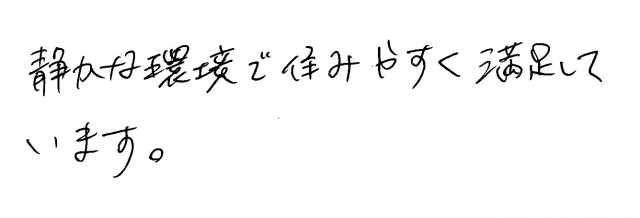 静かな環境で住みやすく満足して
います。